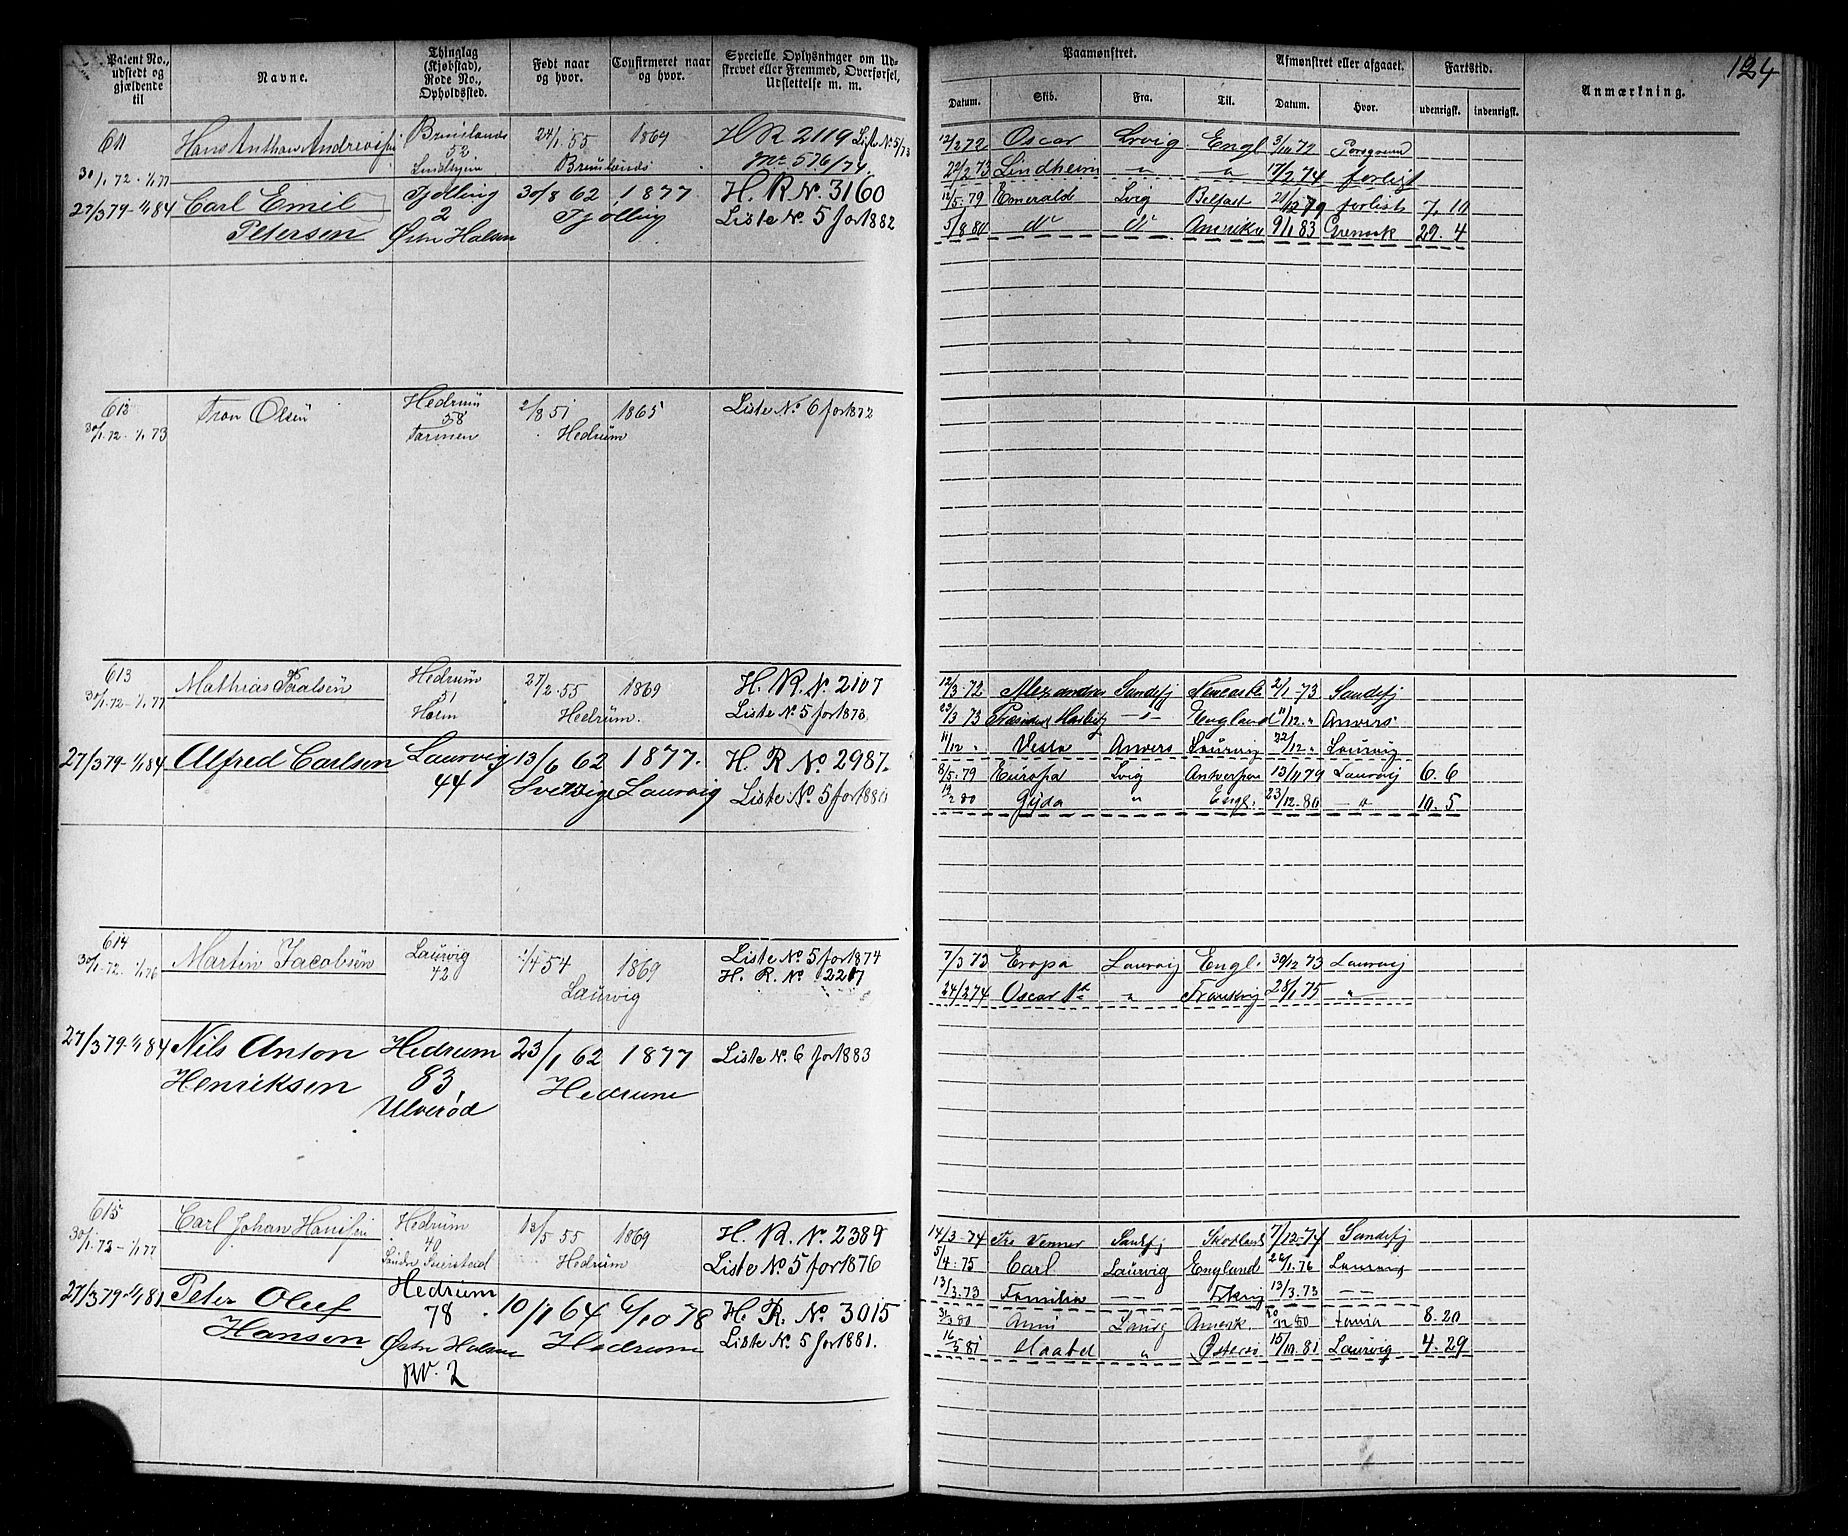 124
Patent No., udstedt og gjældende til
Navne.
Thinglag (Kjøbstad), Rode No., Opholdssted.
Født naar og hvor.
Confirmeret naar og hvor.
Specielle Oplysninger om Udskrevet eller Fremmed, Overførsel, Udslettelse m. m.
Paamønstret.
Afmønstret eller afgaaet.
Fartstid.
Anmærkning.
Datum. Skib. Fra. Til. Datum. Hvor. udenrigsk. indenrigsk.
611 Hans Anthon 52 24/1 55 1869 H R 2119 Liste No 5/73
30/1 72 - 1/1 77 576/74
12/2 72 Oscar Lrvig Engl 3/10 72 Porsgrund
22/2 73 Lindheim " " 17/2 74 forligt
27/3 79 - 1/1 84 Carl Emil Petersen Tjølling 2 30/8 62 1877 Tjølling H. R. No. 3160
Liste No. 5 for 1882
12/5 79 Esmerald Lvig Belfast 79 forlist 7. 10
5/8 80 do do Amerika 9/1 83 29. 4
612 Tron Olsen Hedrum 58 2/8 51 1865 Liste No. 6 for 1872
30/1 72 - 1/1 73 Farmen Hedrum
613 Mathias Paulsen Hedrum 51 27/2 55 1869 H. R. No. 2107
30/1 72 - 1/1 77 Holm Hedrum. Liste No. 5 for 1873
12/3 72 Alexandra Sandefj Newcastle 2/1 73 Sandefj
23/3 73 England 11/12 " Anvers
11/12 " Vesta Anvers Laurvig 22/12 " Laurvig
27/3 79 - 1/1 84 Alfred Carlsen Laurvig 44 13/6 62 1877. H. R. No. 2987.
Sverrige Laurvig Liste No. 5 for 1880
8/5 79 Europa Lvig Antwerpen 13/11 79 Laurvig 6. 6
19/2 80 Gyda " Engl. 23/12 80 — " — 10. 5
614 Martin Jacobsen Laurvig 42 1/4 54 1869 Liste No 5 for 1874
30/1 72 - 1/1 76 Laurvig H. R. No 2217
7/3 73 Eropa Laurvig Engl. 30/12 73 Laurvig
24/2 74 Oscar " 28/1 75 "
27/3 79 - 1/1 84 Nils Anton Henriksen Hedrum 83 Ulverød 23/1 62 1877 Hedrum Liste No. 6 for 1883
615 Carl Johan Hedrum 40 13/5 55 1869 H. R. No 2389
30/1 72 - 1/1 77 Hedrum Liste No 5 for 1876
14/3 74 Tre Venner Sandefj Skotland 7/12 74 Sandefj
5/4 75 Carl Laurvig England 26/1 76 Laurvig
13/3 73 Familia — — 13/3 73 — —
27/3 79 - 1/1 81 Peter Oluf Hansen Hedrum 78 10/1 64 6/10 78 Hedrum H. R. No. 3015
Liste No. 5 for 1881.
No. 2
31/3 80 Laurvig Amerik 80 8. 20
16/3 81 Haabet " Østersø 15/10 81 Laurvig 4. 29